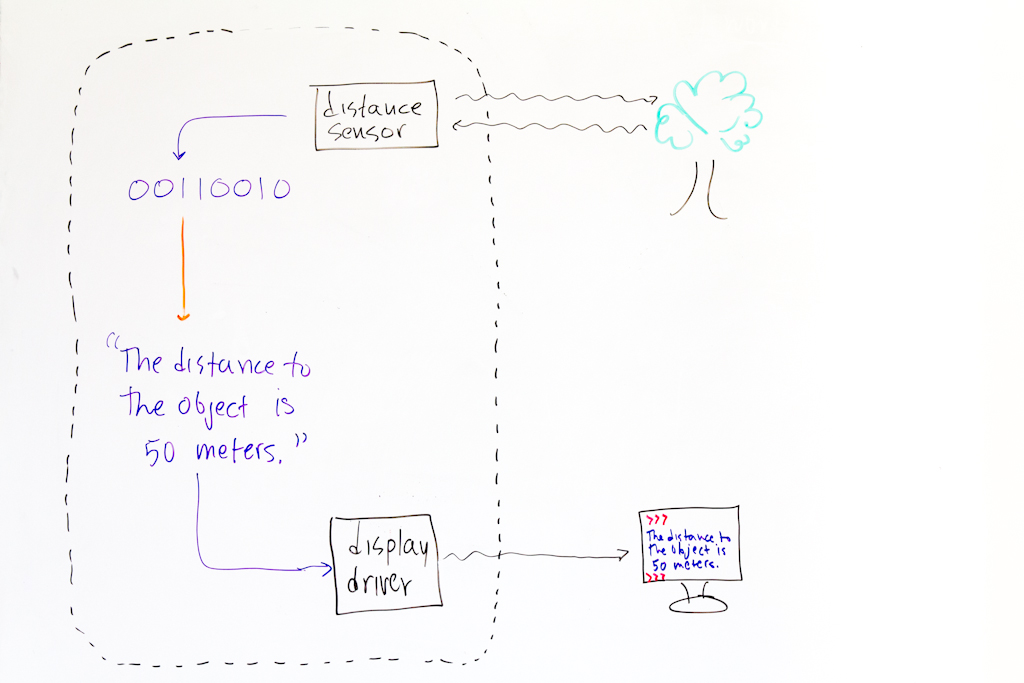 distance
sensor
00110010
“The distance to
the object is
50 meters.”
display
driver
>>>
The distance to
the object is
50 meters.
>>>